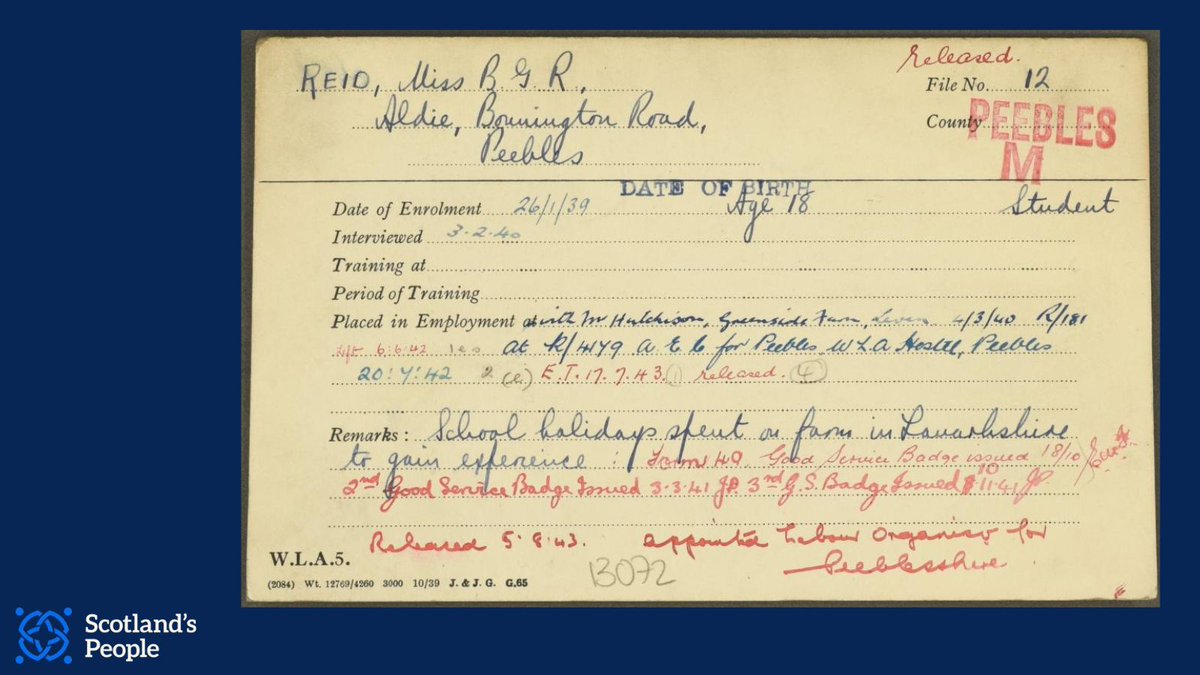 released.
REID, Miss B G R,
File No. 12
Aldie, Bonnington Road,
County PEEBLES
Peebles
M
DATE OF BIRTH
Date of Enrolment 26/1/39 Age 18 Student
Interviewed 3.2.40
Training at
Period of Training
Placed in Employment at with Mr Hutchison, Greenside Farm, Leven 4/3/40 R/181
Left 6.6.42 at R/4179 A E C for Peebles W L A Hostel, Peebles
20.7.42 2 E.T. 17.7.43. 1 released. 4
Remarks: School holidays spent on farm in Lanarkshire
to gain experience : Good Service Badge issued 18/10
2nd Good Service Badge Issued 3.3.41 JP. 3rd G.S. Badge Issued JP
Released 5.8.43. appointed Labour Organiser for
Peeblesshire
W.L.A.5.
13072
(2084) Wt. 12769/4260 3000 10/39 J. & J. G. G.65
Scotland's
People